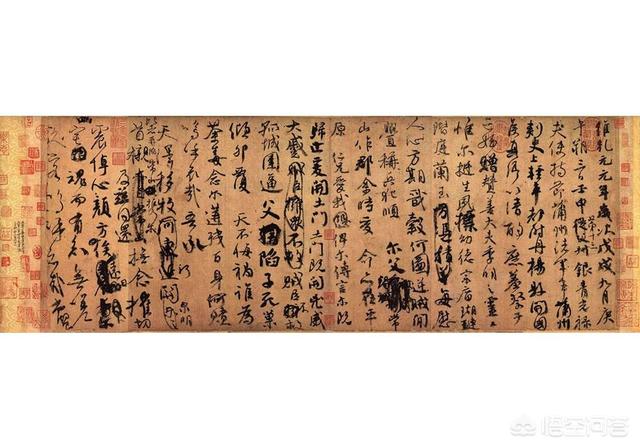 維乾元元年歲次戊戌九月庚
午朔三日壬申第十三叔銀青光祿
夫使持節蒲州諸軍事蒲州
刺史上輕車都尉丹楊縣開國
侯真卿以清酌庶羞祭于
亡姪贈贊善大夫季明之靈曰
惟爾挺生夙標幼德宗廟瑚璉
階庭蘭玉每慰
人心方期戩穀何圖逆賊閒
釁稱兵犯順爾父竭誠常
山作郡余時受命亦在平
原仁兄愛我俾爾傳言爾既
歸止爰開土門土門既開凶威
大蹙賊臣不救
孤城圍逼父陷子死巢
傾卵覆天不悔禍誰為
荼毒念爾遘殘百身何贖
嗚呼哀哉吾承
天澤移牧河關泉明
首櫬及茲同還撫念摧切
震悼心顏方俟遠日
宅魂而有知無嗟
久客嗚呼哀哉尚饗
悟空问答